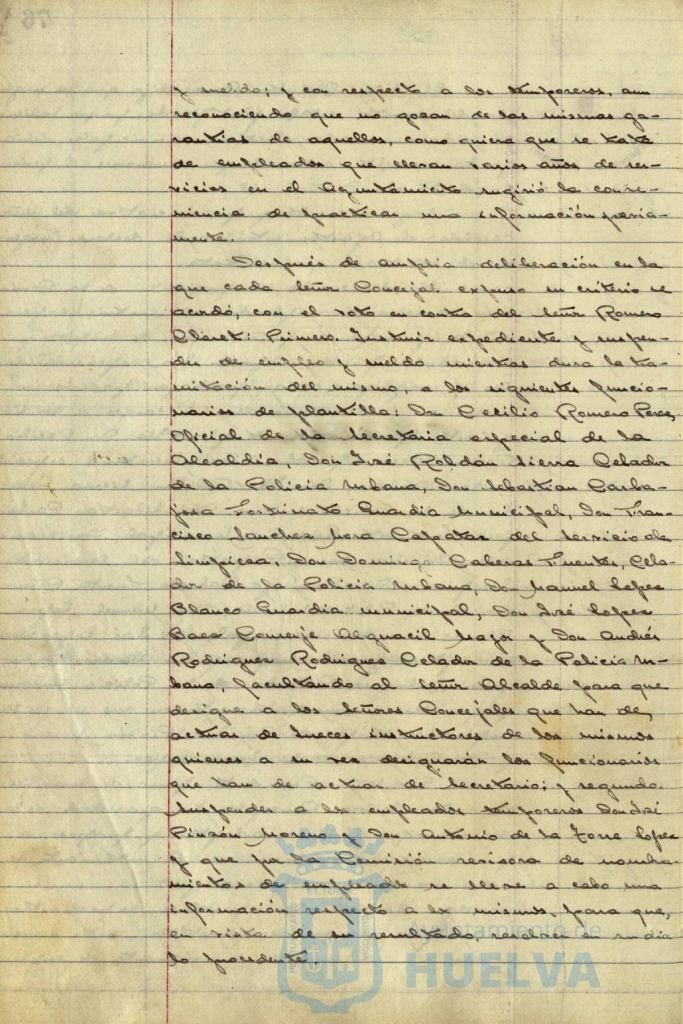 y sueldo; y con respecto a los temporeros, aun
reconociendo que no gozan de las mismas ga-
rantias de aquellos, como quiera que se trata
de empleados que llevan varios años de ser-
vicios en el Ayuntamiento sugirió la conve-
niencia de practicar una información previa-
mente.
Después de amplia deliberación en la
que cada Señor Concejal expuso su criterio se
acordó, con el voto en contra del Señor Romero
Claret: Primero. Instruir expediente y suspen-
der de empleo y sueldo mientras dura la tra-
mitación del mismo, a los siguientes funcio-
narios de plantilla: Don Cecilio Romero Perez,
Oficial de la Secretaria especial de la
Alcaldía, Don José Roldán Sierra Celador
de la Policia Urbana, Don Sebastian Carba-
josa Fortunato Guardia Municipal, Don Fran-
cisco Sanchez Mora Capataz del Servicio de
Limpieza, Don Domingo Caberas Fuentes, Cela-
dor de la Policia Urbana, Don Manuel Lopez
Blanco Guardia Municipal, Don José Lopez
Baez Conserje Alguacil Mayor y Don Andrés
Rodriguez Rodriguez Celador de la Policia Ur-
bana, facultando al Señor Alcalde para que
designe a los Señores Concejales que han de
actuar de Jueces instructores de los mismos
quienes a su vez designarán los funcionarios
que han de actuar de Secretario; y segundo.
Suspender a los empleados temporeros Don José
Pinzón Moreno y Don Antonio de la Torre Lopez
y que por la Comisión revisora de nombra-
mientos de empleados se lleve a cabo una
información respecto a los mismos, para que,
en vista de su resultado, resolver en su dia
lo procedente.
Ayuntamiento de
HUELVA